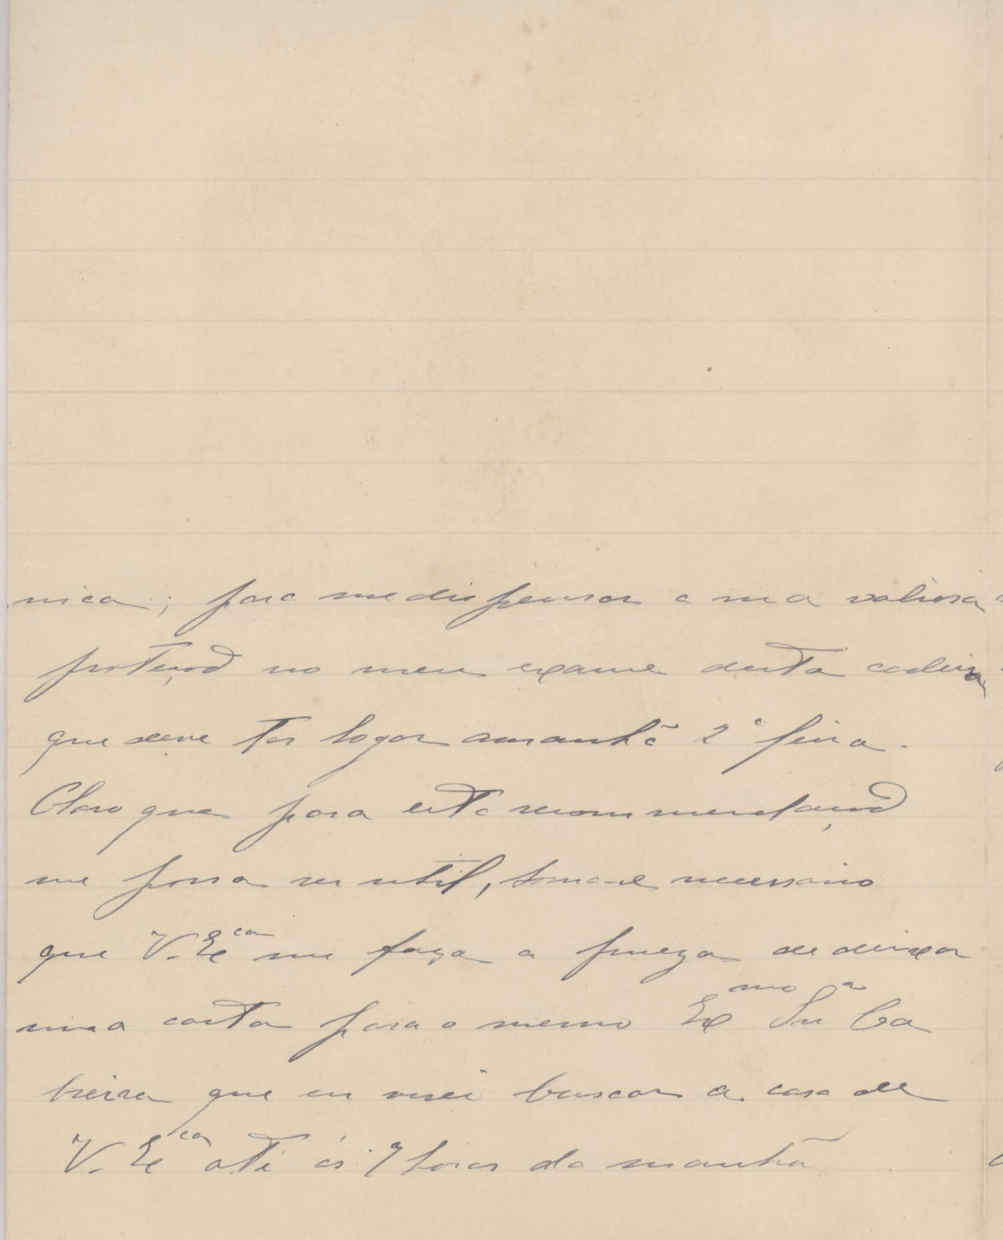 nica; para me dispensar a sua valiosa
protecção no meu exame desta cadeira
que deve ter logar amanhã 2ª feira.
Claro que para esta recommendação
me possa ser util, torna-se necessario
que V. Exᶜⁱᵃ me faça a fineza de deixar
uma carta para o mesmo Exᵐᵒ Snʳ Ca
breira que eu irei buscar a casa de
V. Exᶜⁱᵃ até ás 9 horas da manhã